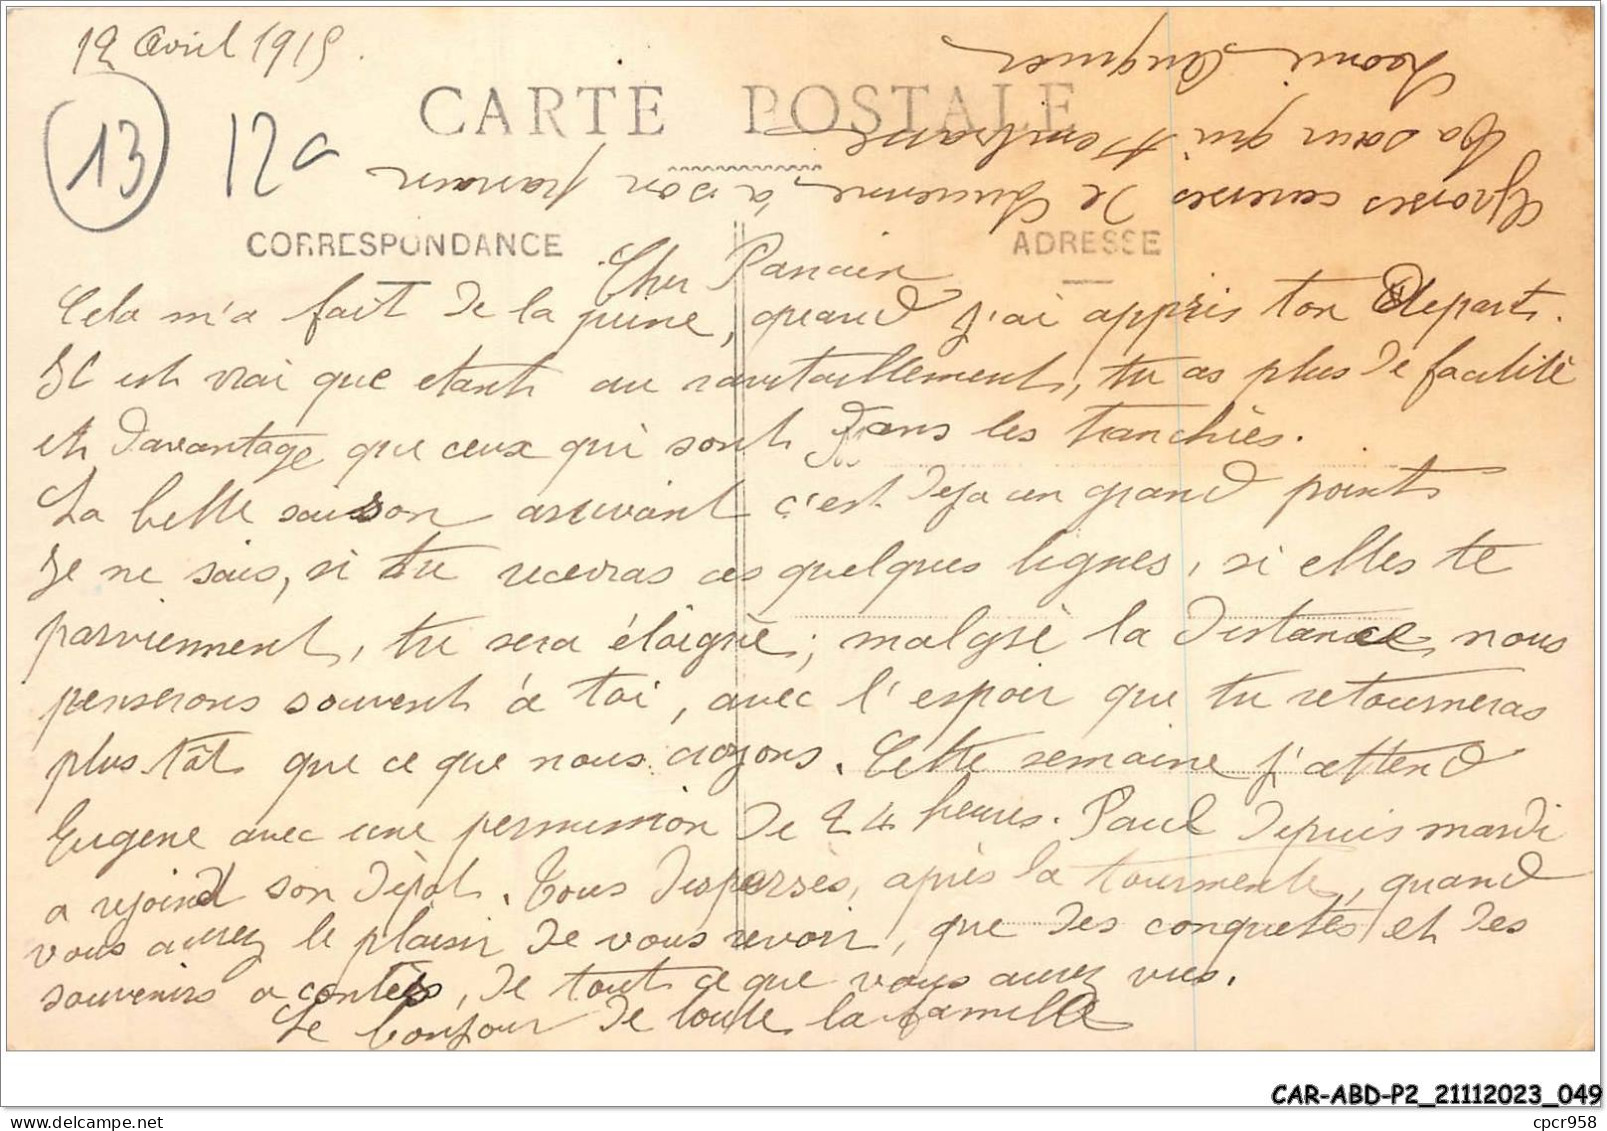 12 Avril 1915.
13
12
CARTE POSTALE
CORRESPONDANCE
ADRESSE
Cher Parrain
Cela m'a fait de la peine, quand j'ai appris ton Depart.
Il est vrai que etant au ravitaillement, tu as plus de facilité
et davantage que ceux qui sont dans les tranchées.
La belle saison arrivant c'est deja un grand point
Je ne sais, si tu recevras ces quelques lignes, si elles te
parviennent, tu sera éloigné; malgré la distance nous
penserons souvent à toi, avec l'espoir que tu retourneras
plus tôt que ce que nous croyons. Cette semaine j'attend
Eugene avec une permission de 24 heures. Paul depuis mardi
a rejoind son dépôt. Tous dispersés, après la tourmente, quand
vous aurez le plaisir de vous revoir, que des conquetes et des
souvenirs a contés, de tout ce que vous aurez vus.
Le bonjour de toute la famille
Grosses caresses de Lucienne, à son parrain
Ta sœur qui t'embrasse
CAR-ABD-P2_21112023_049
cpcr958